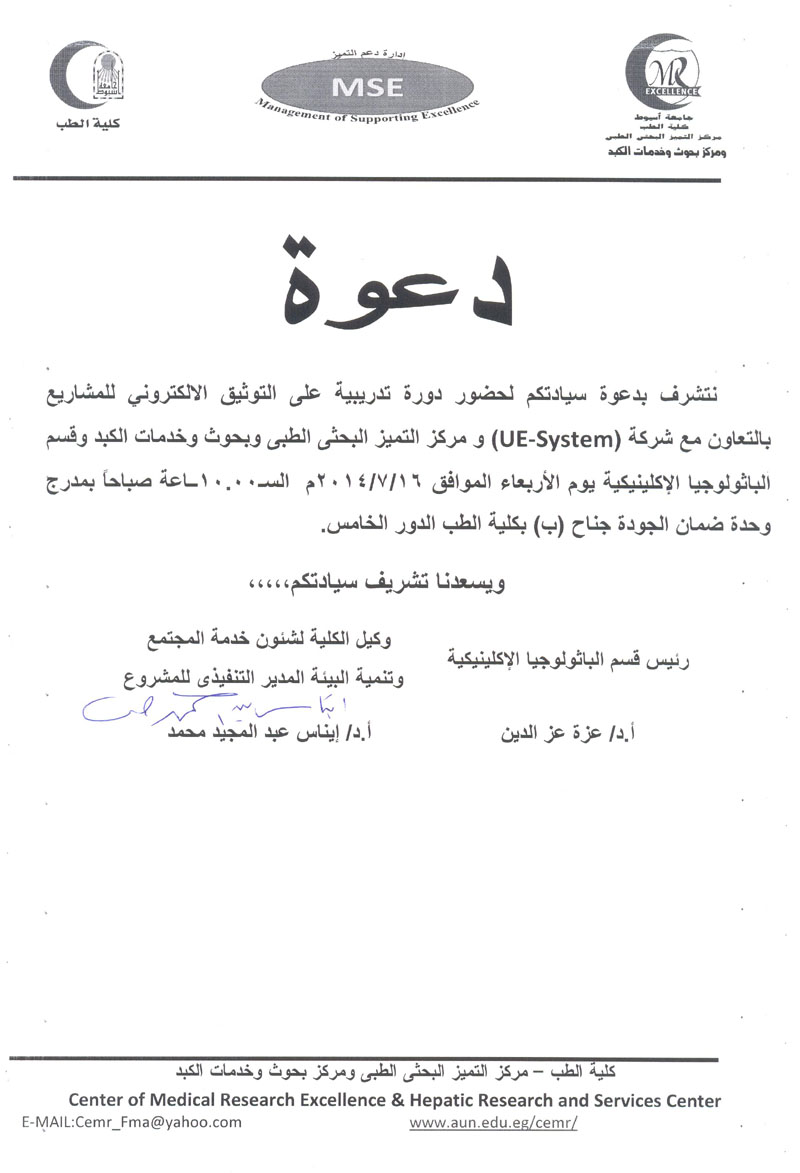 جامعة أسيوط
كلية الطب
مركز التميز البحثى الطبى
ومركز بحوث وخدمات الكبد
MR
EXCELLENCE
ادارة دعم التميز
MSE
Management of Supporting Excellence
كلية الطب
دعوة
نتشرف بدعوة سيادتكم لحضور دورة تدريبية على التوثيق الالكتروني للمشاريع
بالتعاون مع شركة (UE-System) و مركز التميز البحثى الطبى وبحوث وخدمات الكبد وقسم
الباثولوجيا الإكلينيكية يوم الأربعاء الموافق ٢٠١٤/٧/١٦م السـ١٠.٠٠ـاعة صباحاً بمدرج
وحدة ضمان الجودة جناح (ب) بكلية الطب الدور الخامس.
ويسعدنا تشريف سيادتكم،،،،،
رئيس قسم الباثولوجيا الإكلينيكية
أ.د/ عزة عز الدين
وكيل الكلية لشئون خدمة المجتمع
وتنمية البيئة المدير التنفيذى للمشروع
أ.د/ إيناس عبد المجيد محمد
كلية الطب – مركز التميز البحثى الطبى ومركز بحوث وخدمات الكبد
Center of Medical Research Excellence & Hepatic Research and Services Center
E-MAIL:Cemr_Fma@yahoo.com www.aun.edu.eg/cemr/